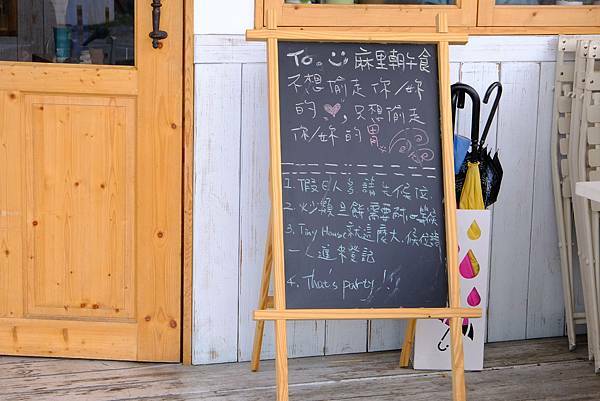 To. 麻里朝午食
不想偷走你/妳
的♥,只想偷走
你/妳的胃。
1. 假日人多請先候位.
2. 炒類蛋餅需要耐心等候
3. Tiny House就這麼大.候位請
進來登記
4. That's party!!